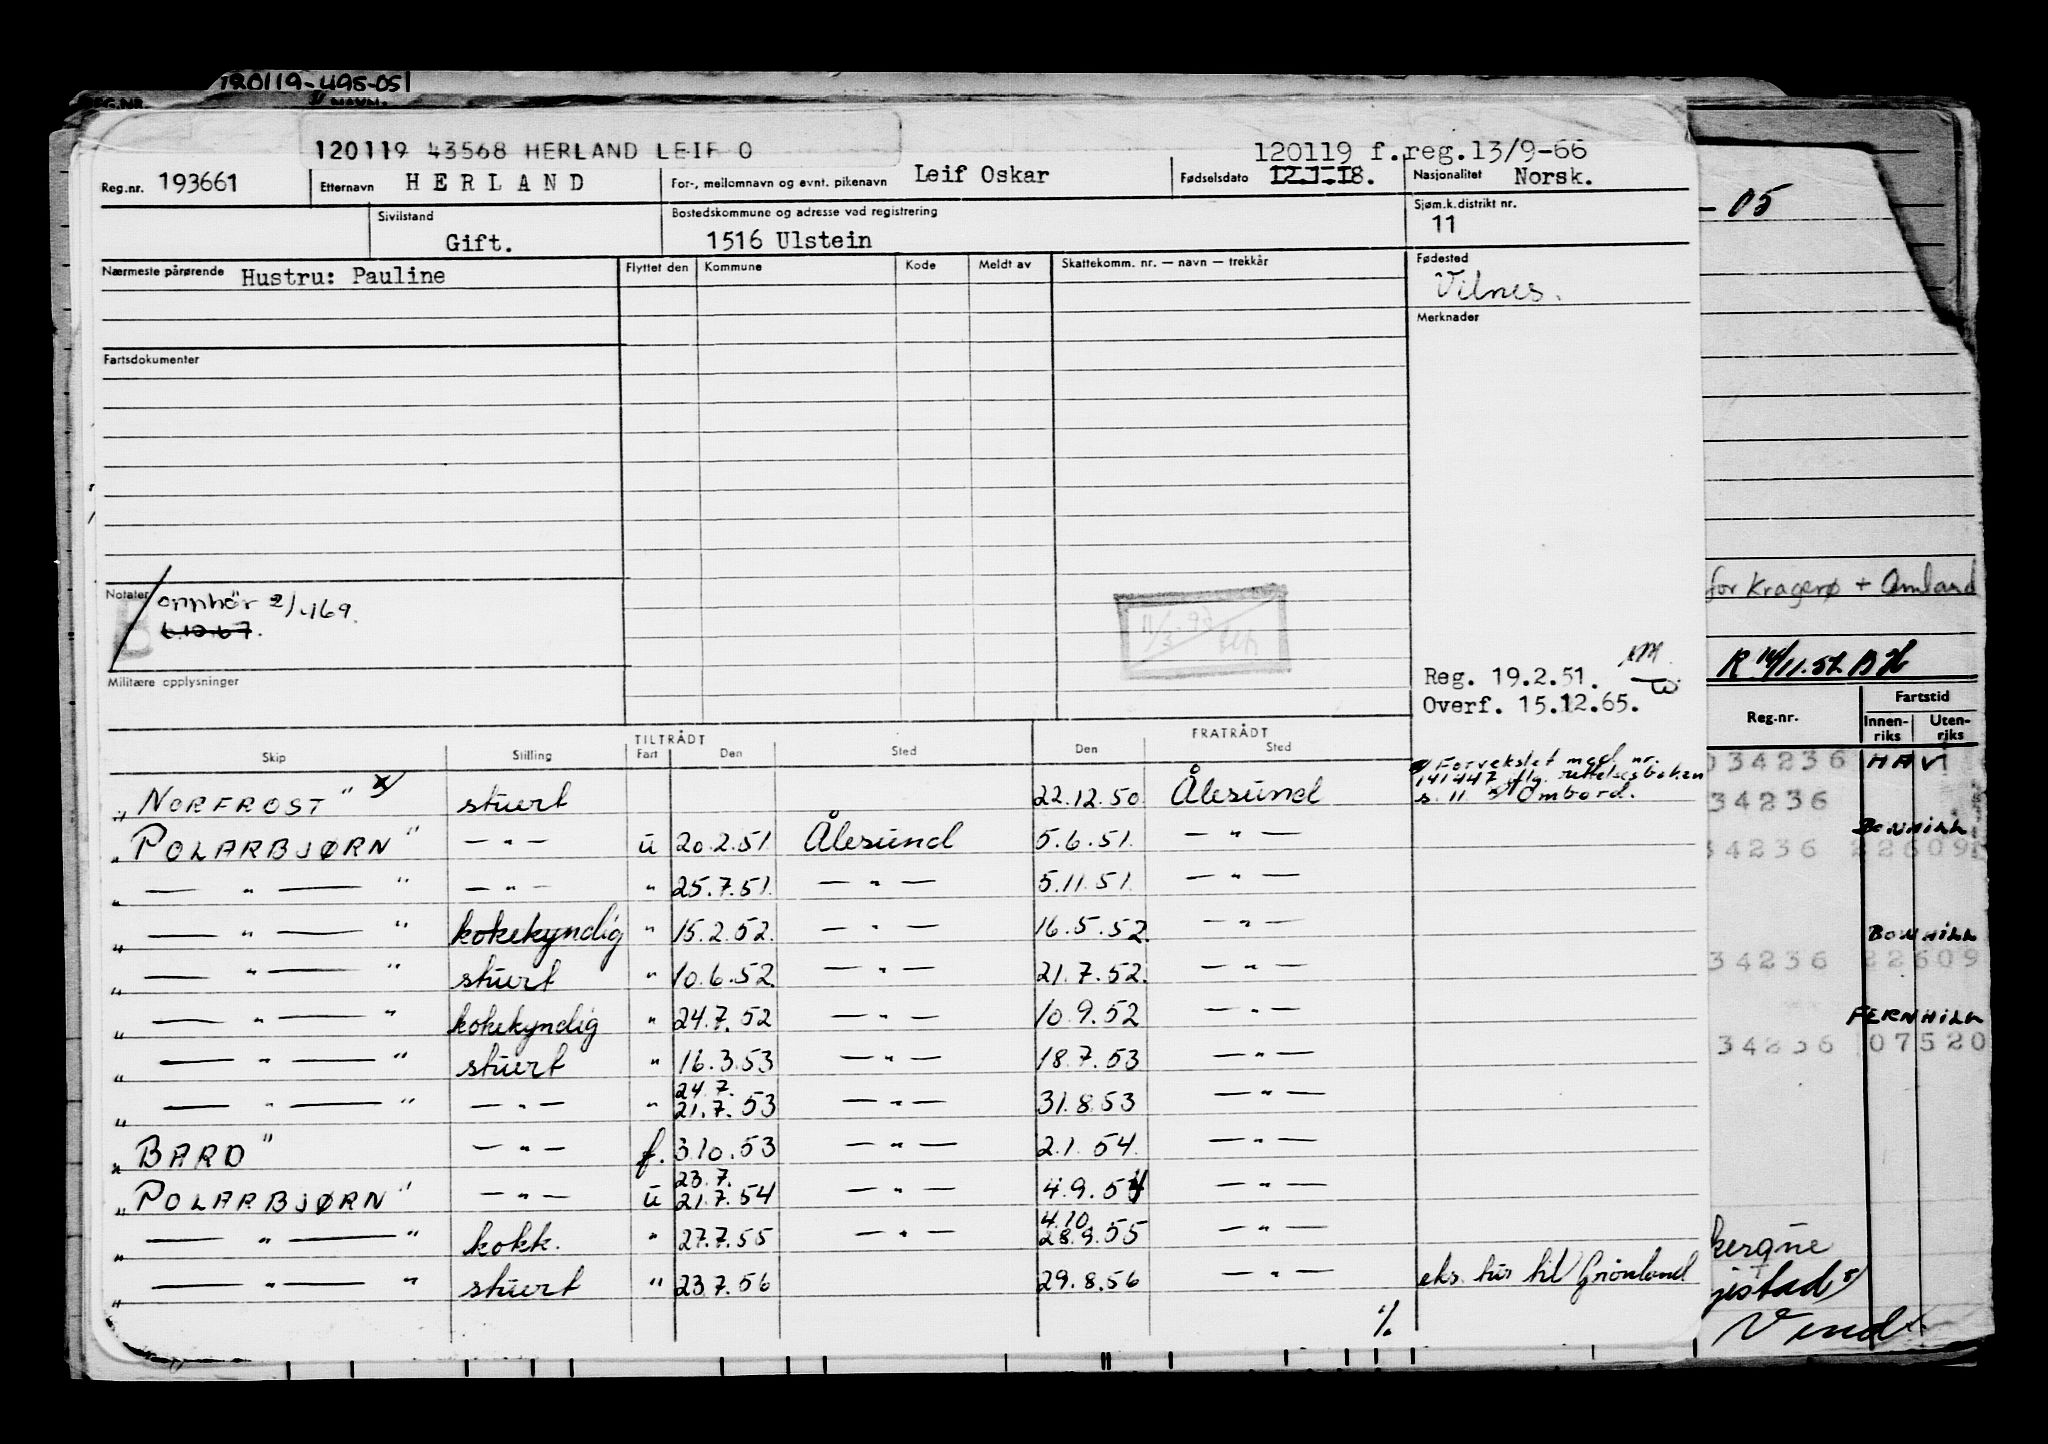 120119-495-05
REG.NR. NAVN:
120119 43568 HERLAND LEIF O
120119 f.reg.13/9-66
Reg.nr. 193661 Etternavn HERLAND For-, mellomnavn og evnt. pikenavn Leif Oskar Fødselsdato 12.I.18. Nasjonalitet Norsk.
Sivilstand Gift. Bostedskommune og adresse ved registrering 1516 Ulstein Sjøm.k.distrikt nr. 11
Nærmeste pårørende Hustru: Pauline Flyttet den Kommune Kode Meldt av Skattekomm. nr. — navn — trekkår Fødested Vilnes.
Merknader
Fartsdokumenter
Notater onnhör 2/4169.
6.10.67.
Militære opplysninger
Reg. 19.2.51.
Overf. 15.12.65.
TILTRÅDT FRATRÅDT
Skip Stilling Fart Den Sted Den Sted
x) Forvekslet med nr.
141447 iflg. rettelsesboken
s. 11 Ombord.
„NORFROST" x) stuert 22.12.50 Ålesund
„POLARBJØRN" — " — u 20.2.51 Ålesund 5.6.51. — " —
„ — " — " — " — " 25.7.51. — " — 5.11.51. — " —
„ — " — " kokekyndig " 15.2.52. — " — 16.5.52. — " —
„ — " — " stuert " 10.6.52. — " — 21.7.52. — " —
„ — " — " kokekyndig " 24.7.52 — " — 10.9.52 — " —
„ — " — " stuert " 16.3.53 — " — 18.7.53 — " —
24.7.
„ — " — " — " — " 21.7.53 — " — 31.8.53 — " —
„BARD" — " — f. 3.10.53 — " — 2.1.54. — " —
23.7.
„POLARBJØRN" — " — u 21.7.54 — " — 4.9.54 — " —
4.10
„ — " — " kokk. " 27.7.55 — " — 28.9.55 — " —
„ — " — " stuert " 23.7.56 29.8.56 — " — eks. tur til Grönland
%
- 05
for Kragerø + Omland
R 14/11.52 BH
Reg.nr. Fartstid
Innen-riks Uten-riks
034236 HAV
34236
BONHILL
34236 22609
BONHILL
34236 22609
FERNHILL
34236 07520
kerøine
jistad
Vend